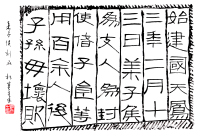 始建國天鳳
三年二月十
三日萊子侯
為支人為封
使偖子食等
用百余人後
子孫毋壞敗
萊子侯刻石